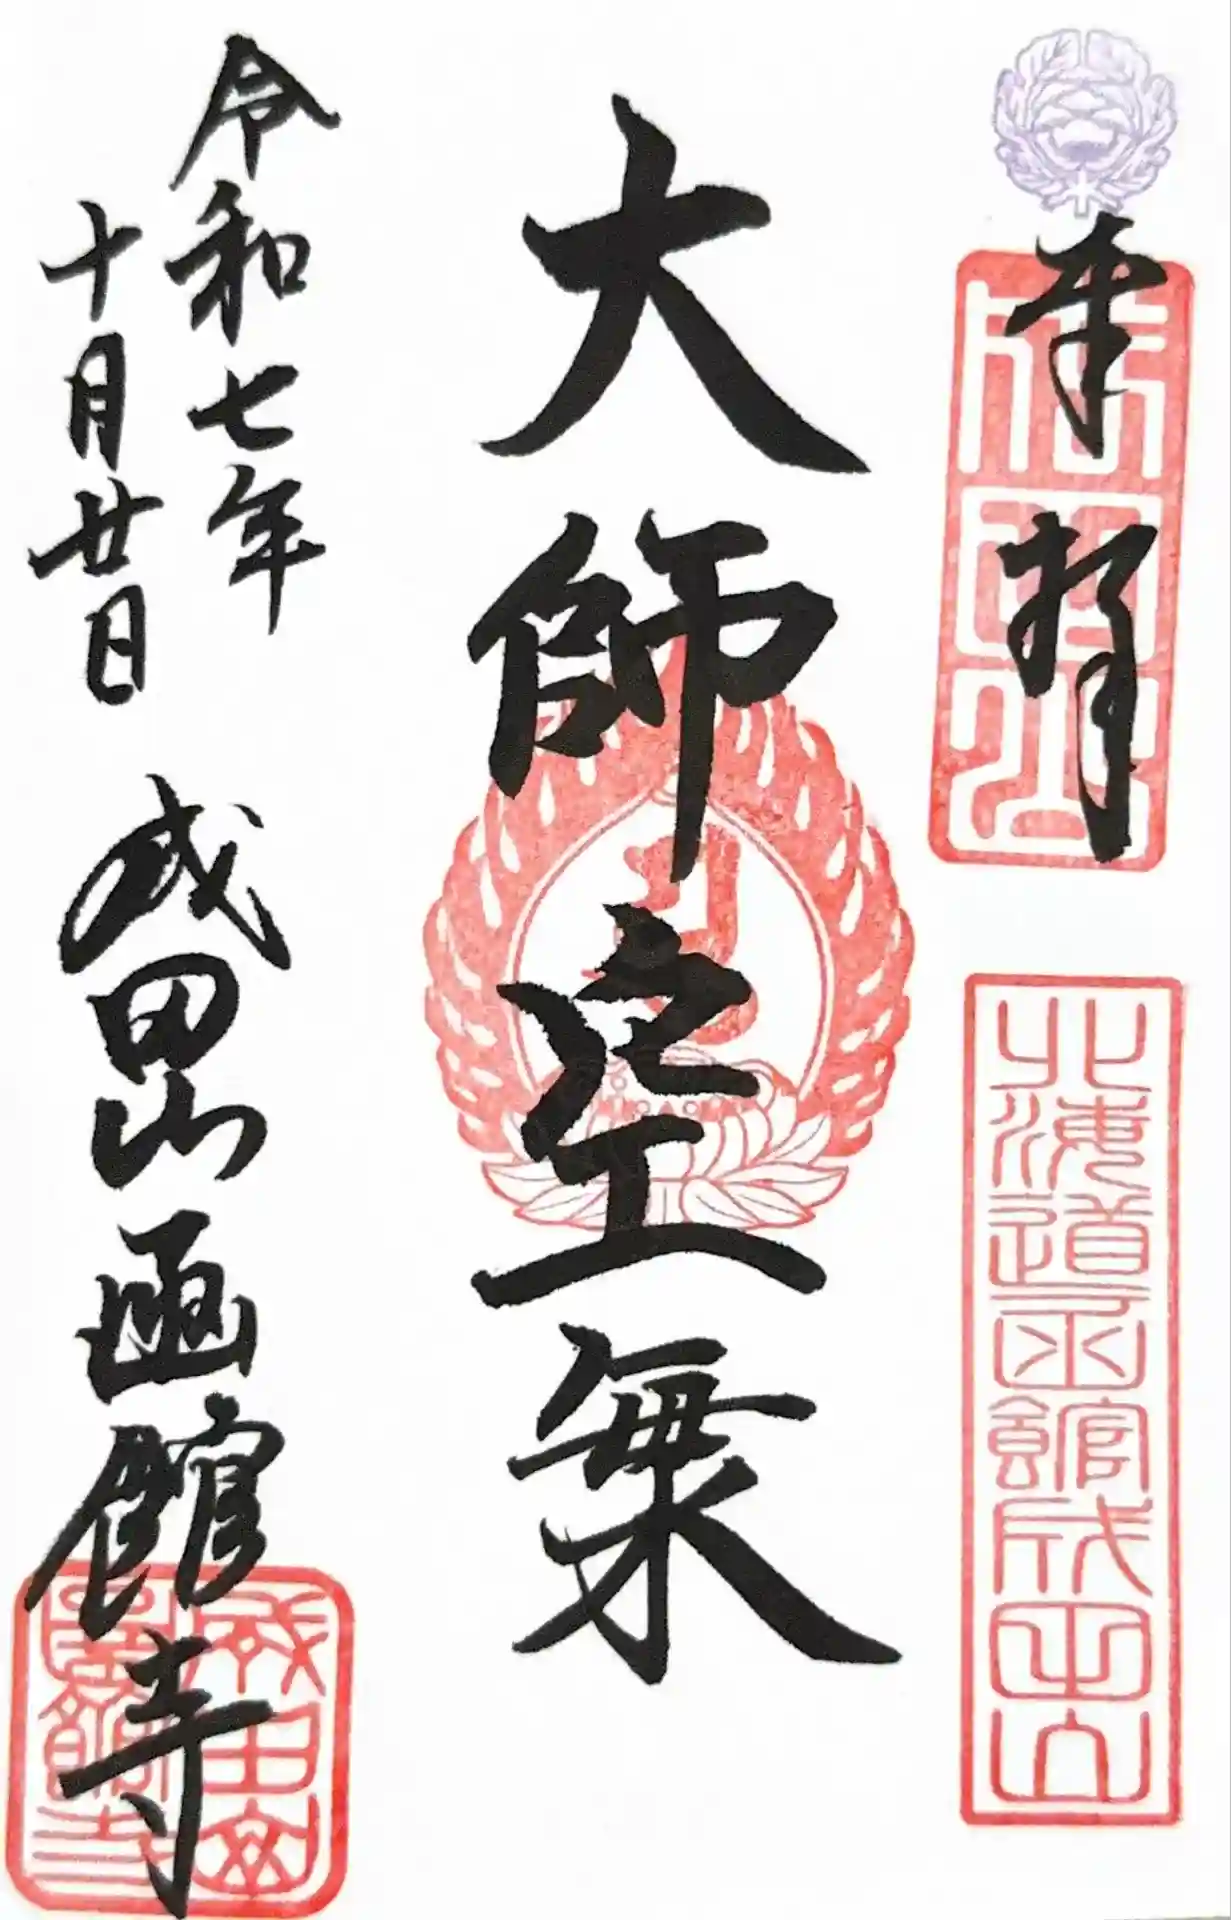 奉拝
成田山
北海道函館成田山
大師
令和七年
十月廿日
成田山函館寺
成田山
函館寺